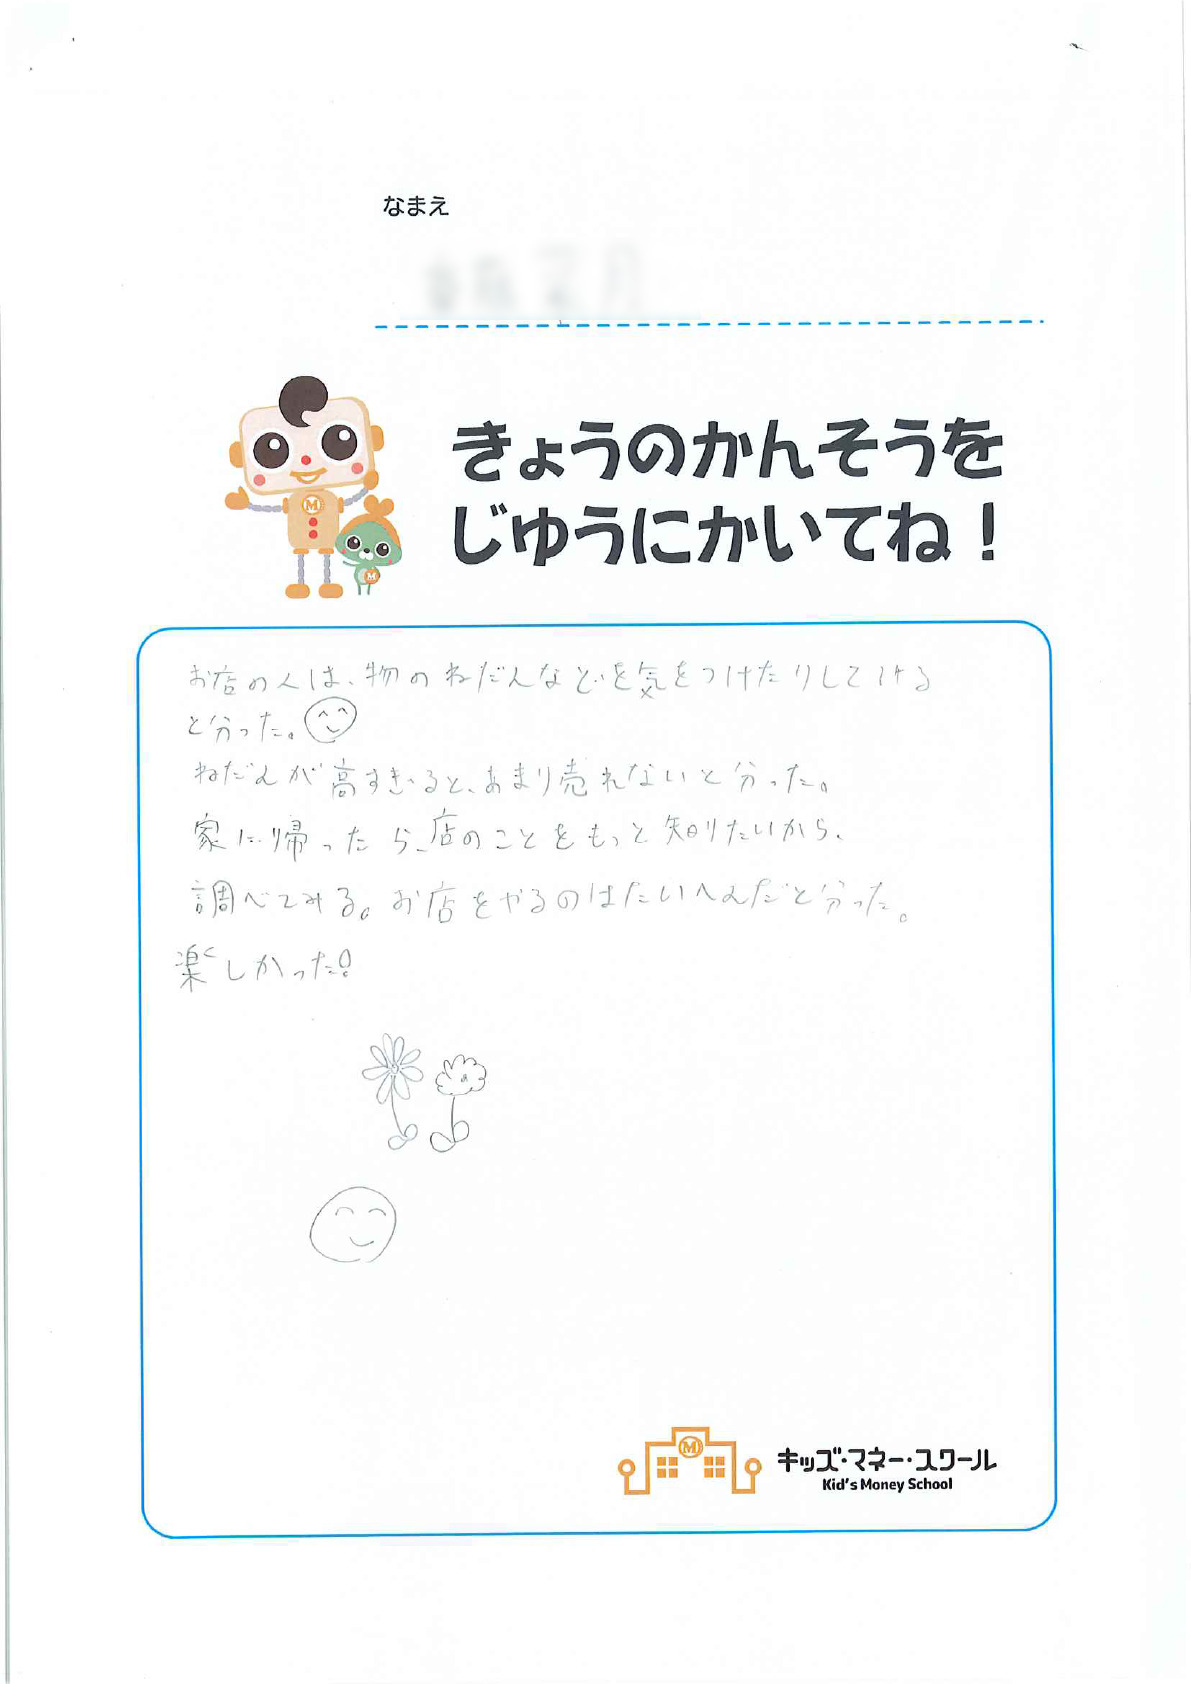 なまえ
きょうのかんそうを
じゆうにかいてね！
お店の人は、物のねだんなどを気をつけたりしていける
と分った。
ねだんが高すぎると、あまり売れないと分った。
家に帰ったら、店のことをもっと知りたいから、
調べてみる。お店をやるのはたいへんだと分った。
楽しかった!
M
M
M
キッズ・マネー・スクール
Kid's Money School